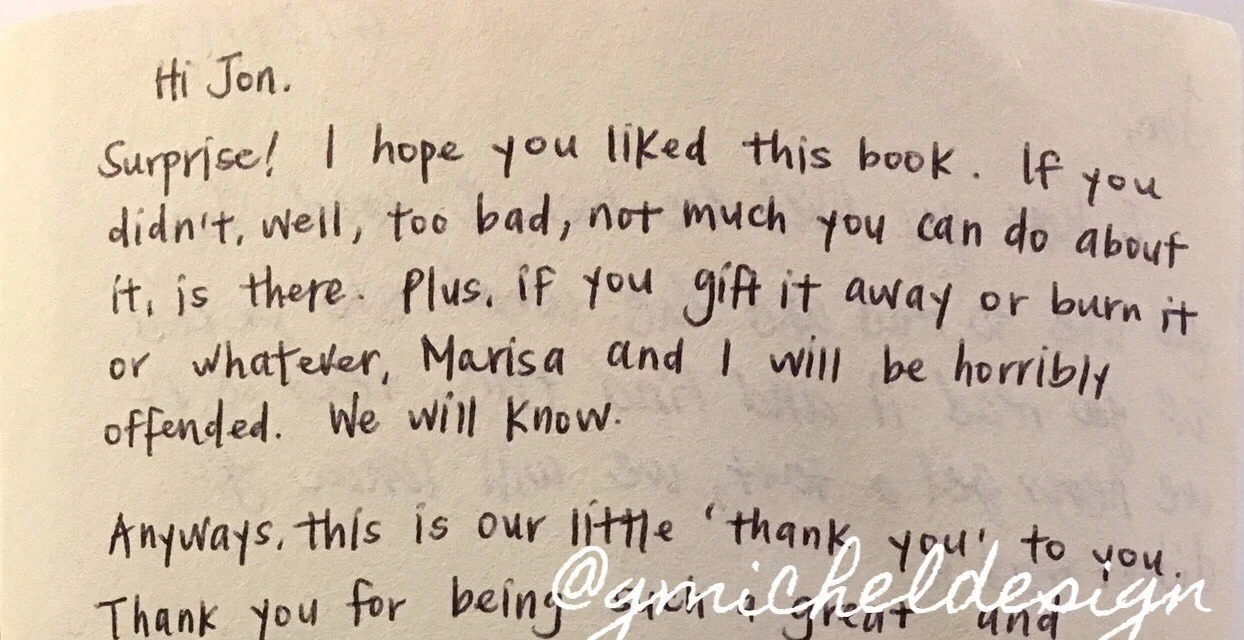 Hi Jon.
Surprise! I hope you liked this book. If you
didn't, well, too bad, not much you can do about
it, is there. Plus, if you gift it away or burn it
or whatever, Marisa and I will be horribly
offended. We will know.
Anyways, this is our little 'thank you' to you.
Thank you for being such a great and
@gmicheldesign